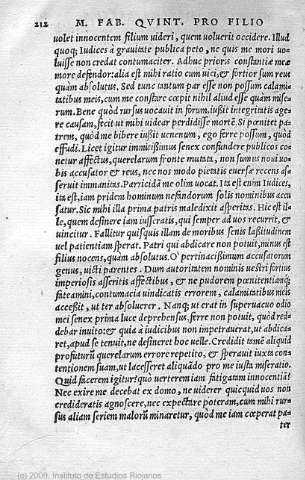 212 M. FAB. QVINT. PRO FILIO
uolet innocentem filium uideri, quem uoluerit occidere. Illud
quoq; Iudices à grauitate publica peto, ne quis me mori uo-
luisse non credat contumaciter. Adhuc prioris constantiæ mea
more defendor: alia est mihi ratio cum uici, & fortior sum reus
quàm absolutus. Sed tunc tantum par esse non possum calami-
tatibus meis, cum me constare cœpit nihil aliud esse quàm mise-
rum. Bene quòd rursus uocauit in forum. iußit integritatis age
re causam, fecit ut mihi uidear perdidisse mortē. Si pænitet pa-
trem, quòd me bibere iußit uenenum, ego ferre possum, quòd
effudi. Licet igitur immitißimus senex confundere publicos co-
netur affectus, querelarum fronte mutata, non sumus noui uo-
bis accusator & reus, nec nos modo pietatis
seruit immanitas. Parricidā me olim uocat. Ita est enim Iudices,
ita est, iam pridem hominum nefandorum solis nominibus accu
satur. Sic mihi illa prima patris maledixit asperitas. Hic est il-
le, quem definere iam iussistis, qui semper ad uos recurrit, &
uincitur. Fallitur quisquis illam de moribus senis laßitudinem
uel patientiam sperat. Patri qui abdicare non potuit, minus est
filius nocens, quàm absolutus. O pertinacißimum accusatorum
genus, uicti parentes. Dum autoritatem nominis uestri fortius
imperiosis asseritis affectibus, & ne pudorem pœnitentiamq́;
fateamini, contumacia uindicatis errorem, calamitatibus meis
acceßit, ut ter absoluerer. Nanq; ut erat in superuacuo odio
mei senex prima luce deprehensus, ferre non potuit, quòd red-
debar inuito: & quia à iudicibus non impetrauerat, ut abdica-
ret, apud se tenuit, ne desineret hoc uelle. Credidit tamē aliquid
profuturū querelarum errore repetito, & sperauit iuxta con-
tentionem suam, ut lacesseret aliquādo pro me iusta miseratio.
Quid facerem igitur? quò uerterem iam fatigatam innocentiā?
Nec exire me decebat ex domo, ne uiderer quicquid uos non
credideratis agnoscere, nec expectare poteram, cum mihi rur-
sus aliam seriem malorū minaretur, quòd me iam cœperat pa-
ter
(c) 2009. Instituto de Estudios Riojanos